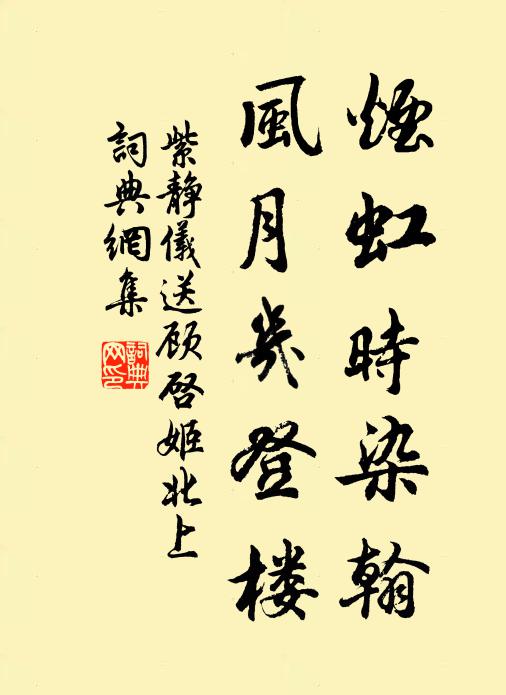 煙虹時染翰
風月幾登楼
紫静儀送顾啓姬北上
詞典網集
詞典
网印